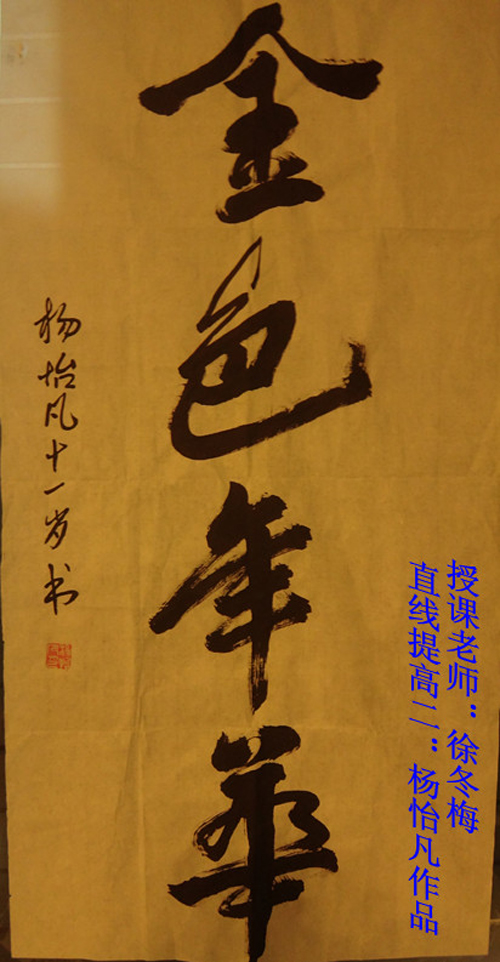 金色年华
杨怡凡十一岁书
授课老师：徐冬梅
直线提高二：杨怡凡作品